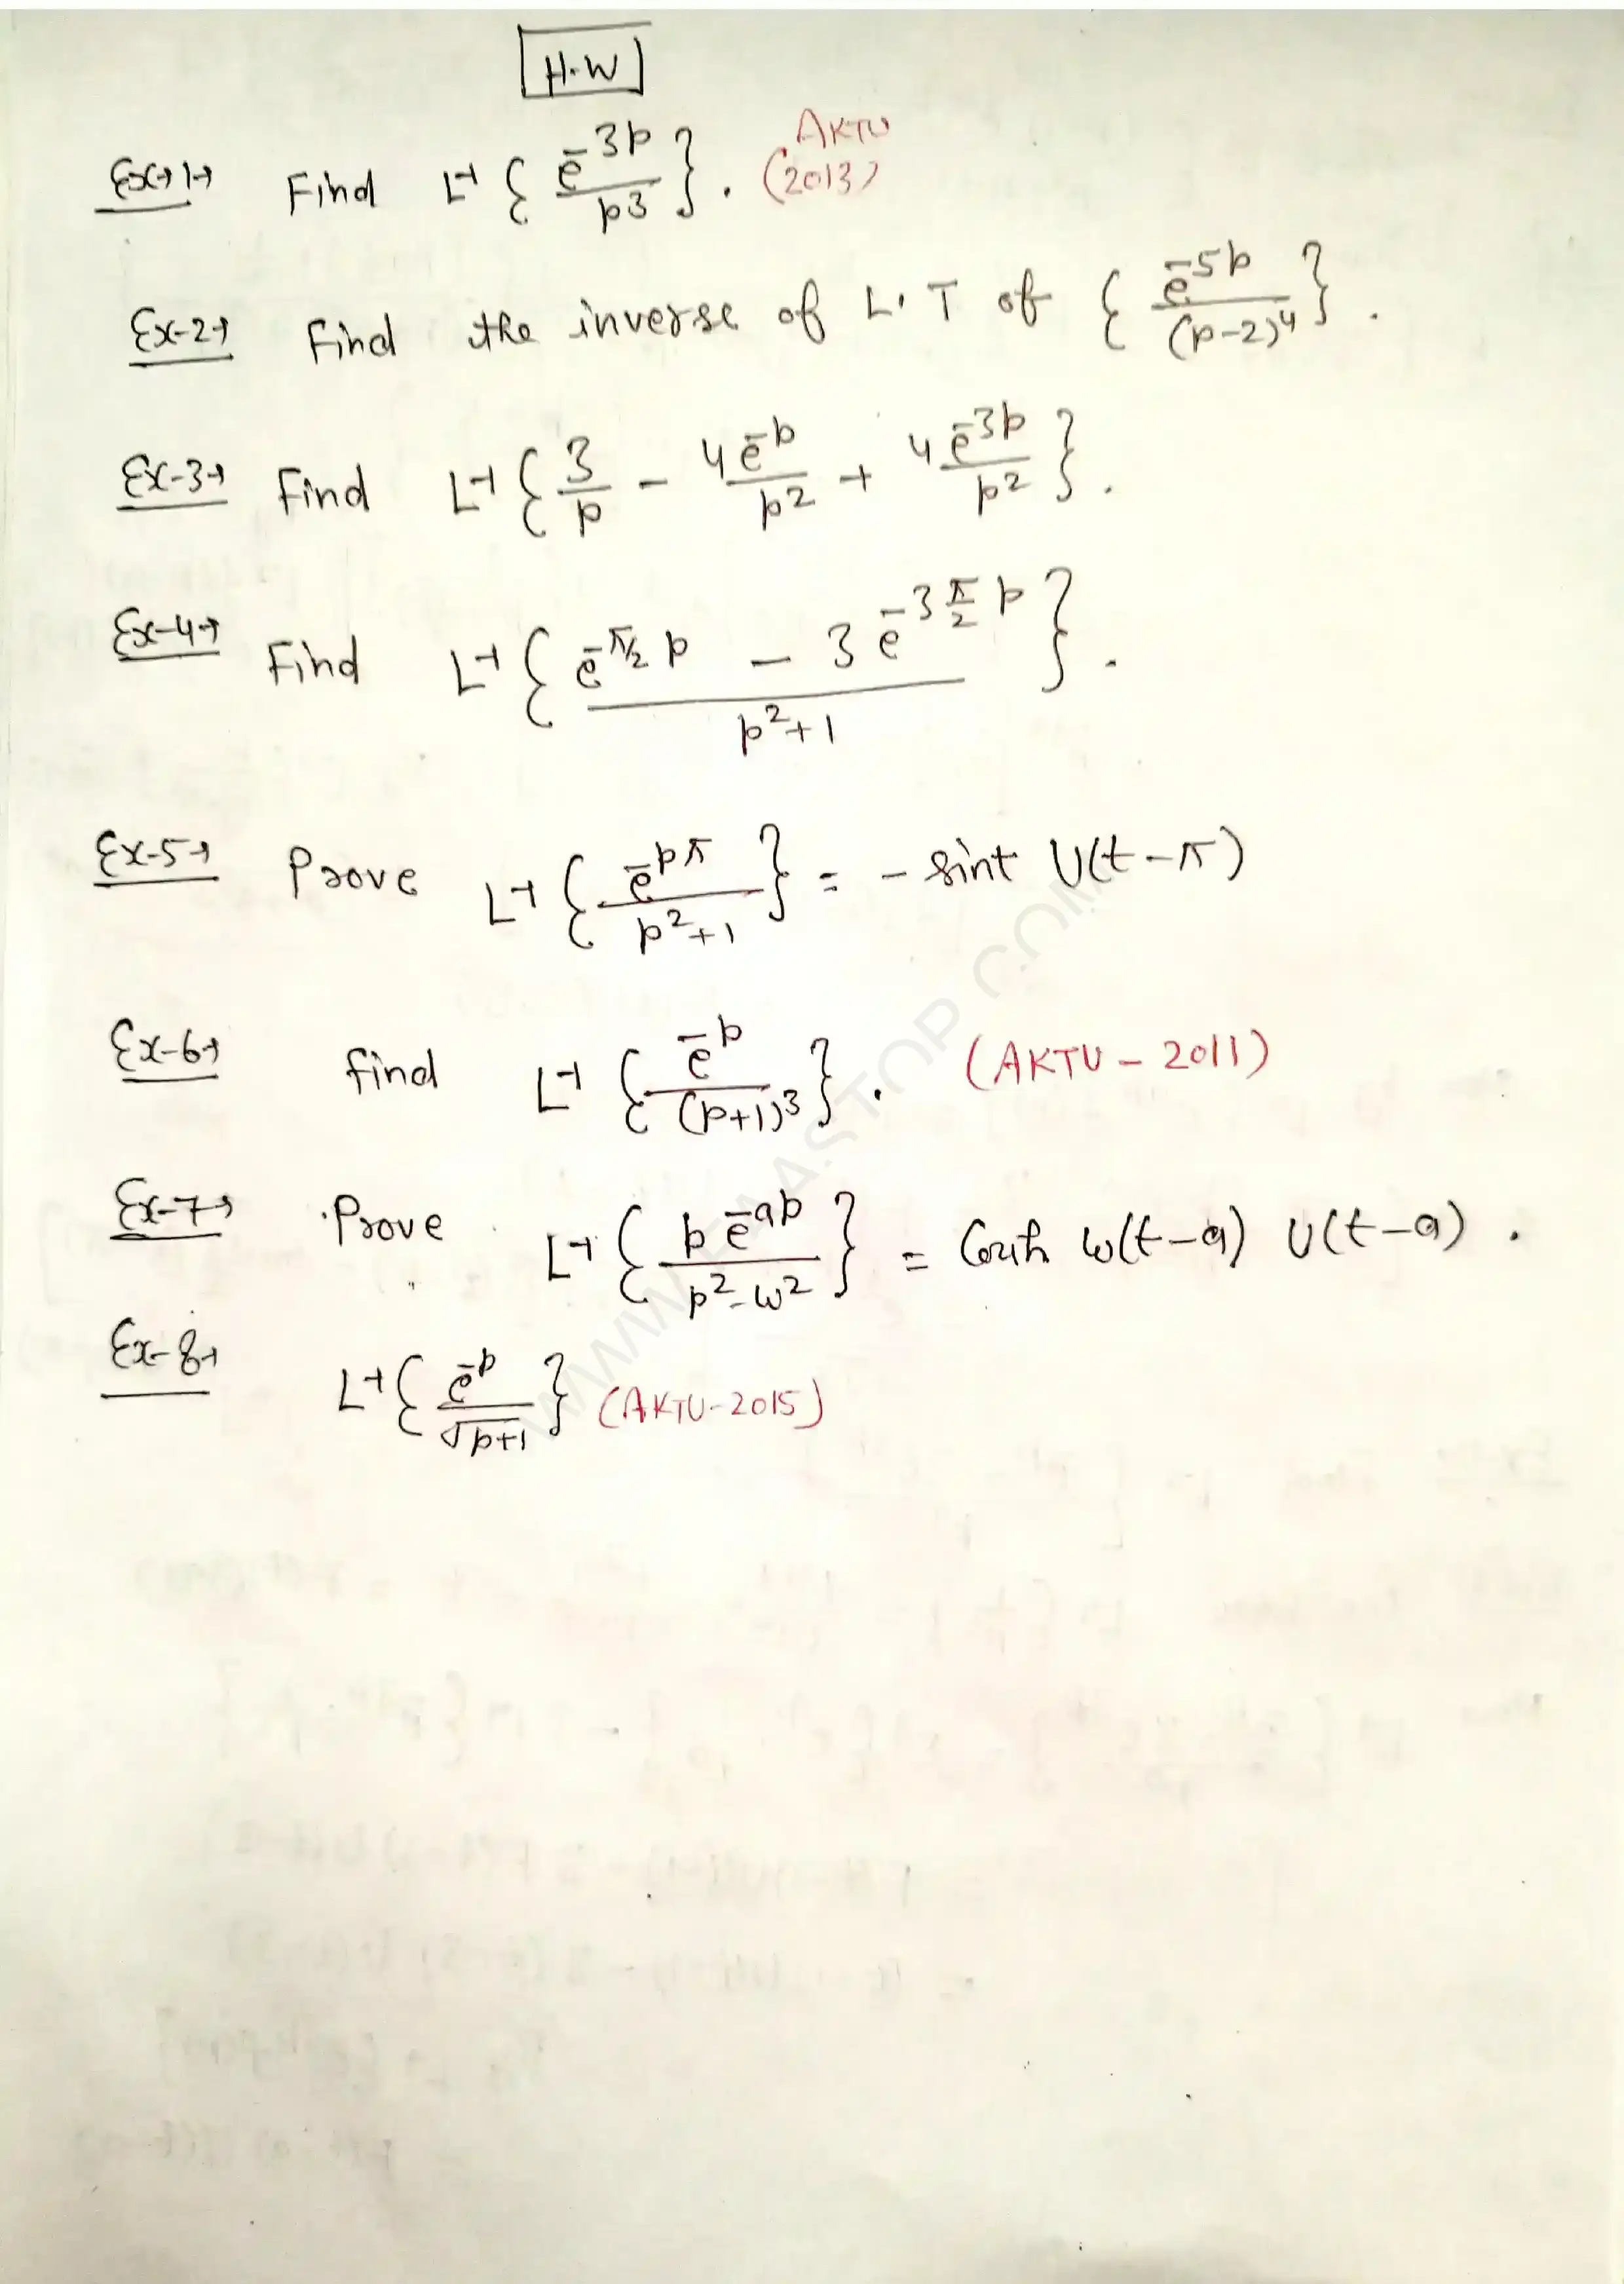 H.W
Ex-1→ Find L⁻¹ { e^-3p / p³ }. AKTU (2013)
Ex-2→ Find the inverse of L.T of { e^-5p / (p-2)⁴ }.
Ex-3→ Find L⁻¹ { 3/p - 4e^-p / p² + 4e^-3p / p² }.
Ex-4→ Find L⁻¹ { e^-π/2 p - 3 e^-3 π/2 p / p²+1 }.
Ex-5→ Prove L⁻¹ { e^-pπ / p²+1 } = - sint U(t-π)
Ex-6→ find L⁻¹ { e^-p / (p+1)³ }. (AKTU - 2011)
Ex-7→ Prove L⁻¹ { p e^-ap / p²-w² } = Cosh w(t-a) U(t-a).
Ex-8→ L⁻¹ { e^-p / √p+1 } (AKTU-2015)